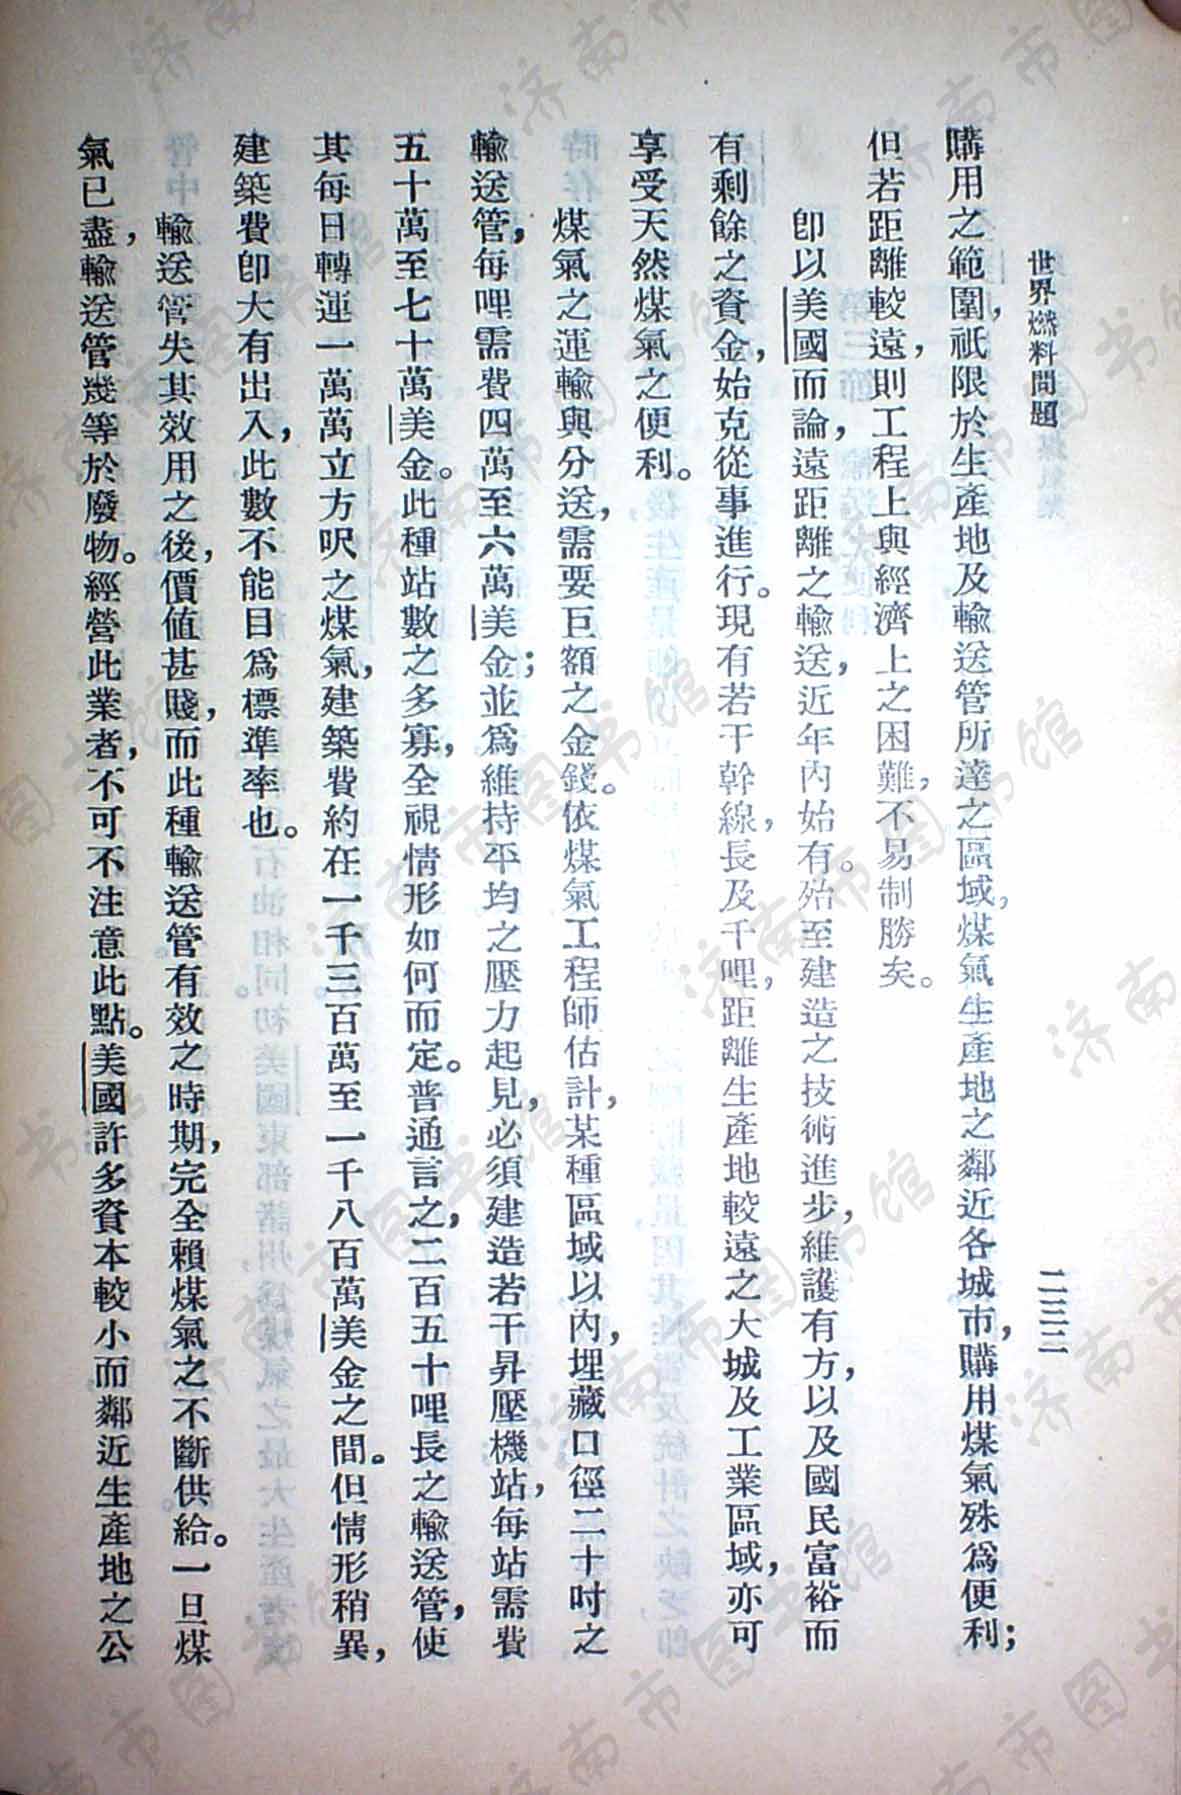 世界燃料問題
二三二
購用之範圍，祇限於生產地及輸送管所達之區域，煤氣生產地之鄰近各城市，購用煤氣殊爲便利；
但若距離較遠，則工程上與經濟上之困難，不易制勝矣。
卽以美國而論，遠距離之輸送，近年內始有。殆至建造之技術進步，維護有方，以及國民富裕而
有剩餘之資金，始克從事進行。現有若干幹線，長及千哩，距離生產地較遠之大城及工業區域，亦可
享受天然煤氣之便利。
煤氣之運輸與分送，需要巨額之金錢。依煤氣工程師估計，某種區域以內，埋藏口徑二十吋之
輸送管，每哩需費四萬至六萬美金；並爲維持平均之壓力起見，必須建造若干昇壓機站，每站需費
五十萬至七十萬美金。此種站數之多寡，全視情形如何而定。普通言之，二百五十哩長之輸送管，使
其每日轉運一萬萬立方呎之煤氣，建築費約在一千三百萬至一千八百萬美金之間。但情形稍異，
建築費卽大有出入，此數不能目爲標準率也。
輸送管失其效用之後，價值甚賤，而此種輸送管有效之時期，完全賴煤氣之不斷供給。一旦煤
氣已盡，輸送管幾等於廢物。經營此業者，不可不注意此點。美國許多資本較小而鄰近生產地之公
济南市图书馆